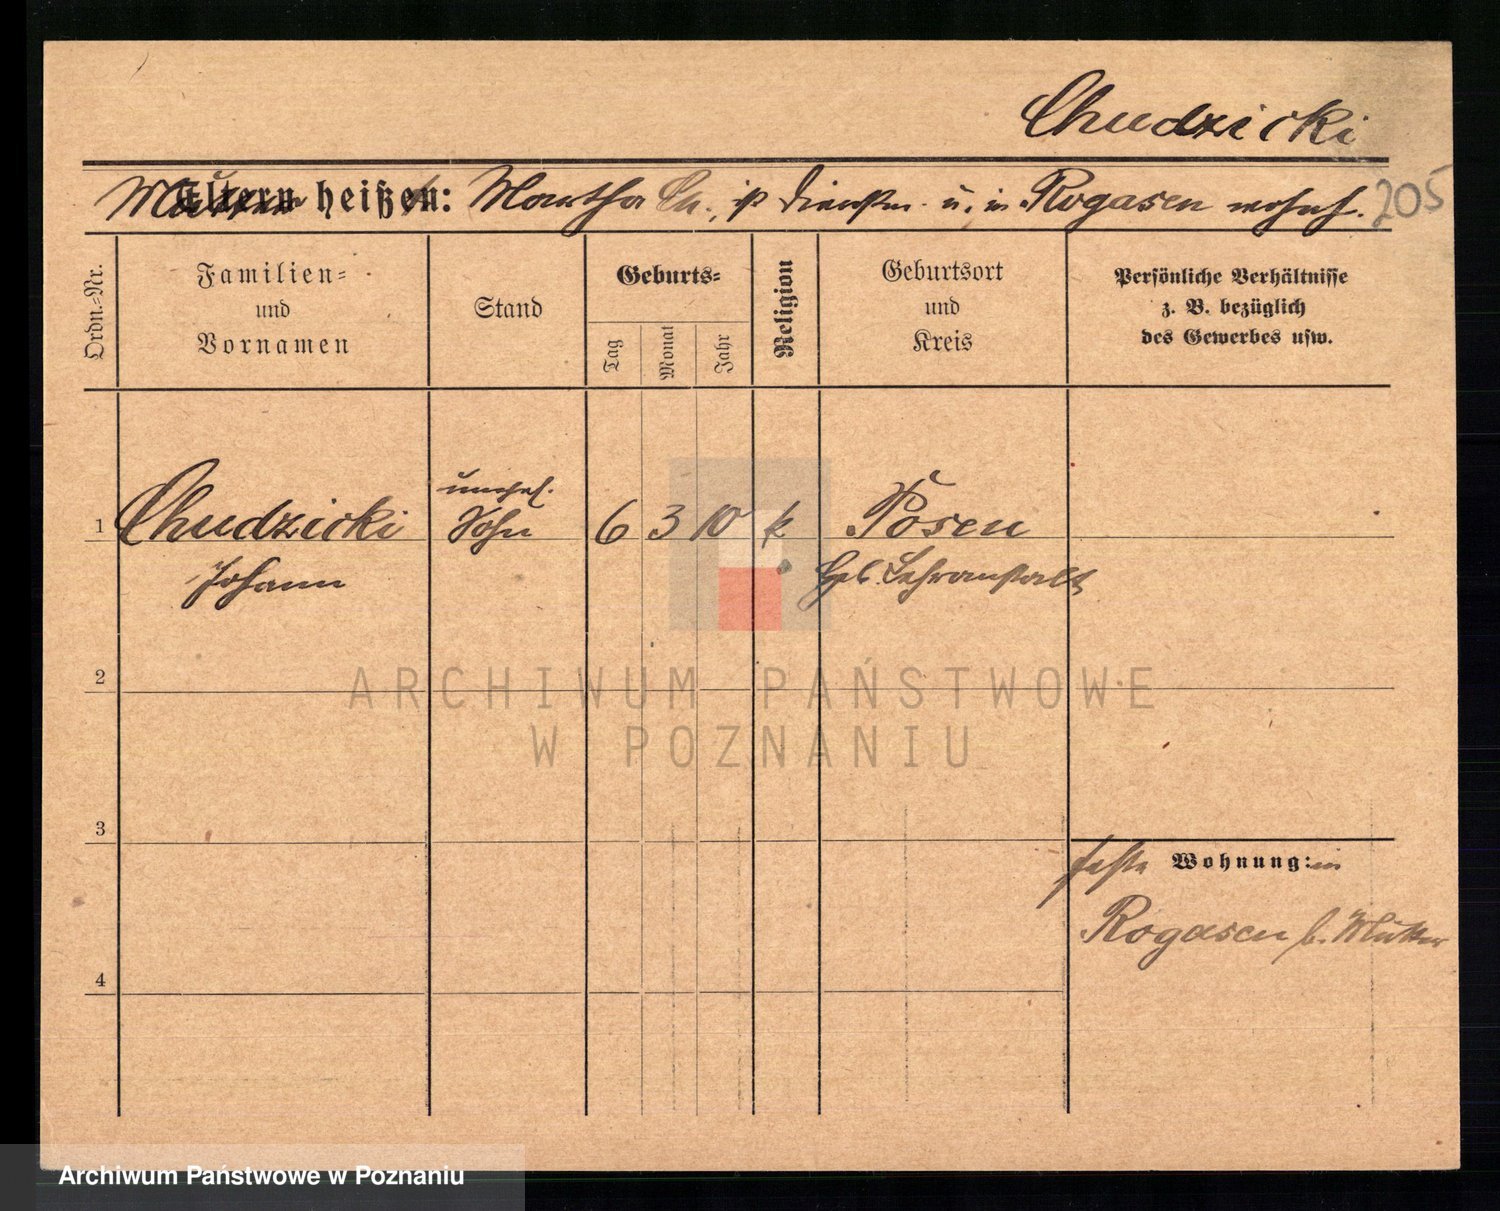 Chudzicki
Mutter heißt: Martha Ch., ist Dienstm. u. in Rogasen wohnh. 205
Eltern heißen:
Ordn.-Nr.
Familien-
und
Vornamen
Stand
Geburts-
Tag
Monat
Jahr
Religion
Geburtsort
und
Kreis
Persönliche Verhältnisse
z. B. bezüglich
des Gewerbes usw.
unehel.
1 Chudzicki Sohn 6 3 10 k Posen
Johann Heb. Lehranstalt
2
ARCHIWUM PAŃSTWOWE
W POZNANIU
3
feste Wohnung: in
Rogasen b. Mutter
4
Archiwum Państwowe w Poznaniu